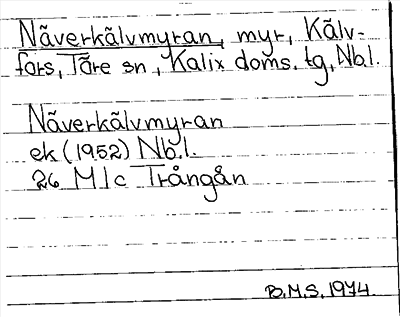 Näverkälvmyran, myr, Kälv-
fors, Töre sn, Kalix doms. tg, Nb.l.
Näverkälvmyran
ek (1952) Nb.l.
26 M 1c Trångån
B.M.S. 1974